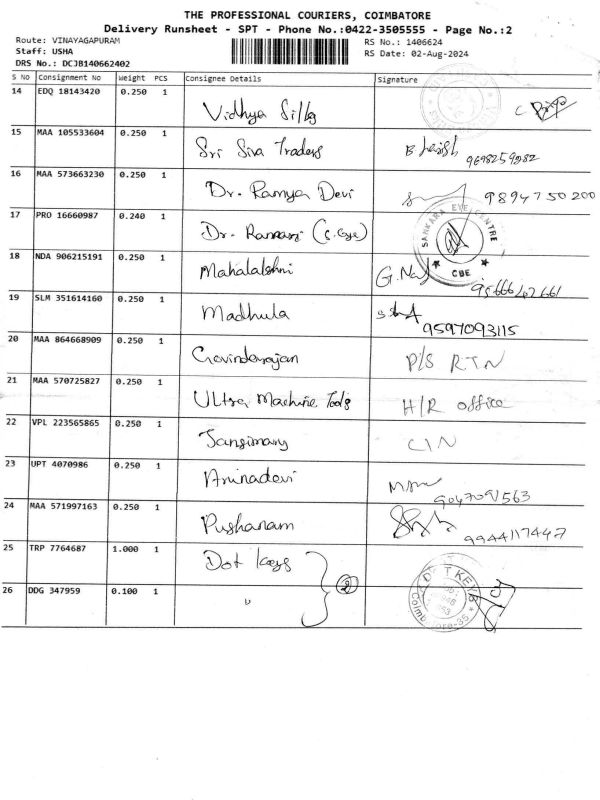 THE PROFESSIONAL COURIERS, COIMBATORE
Delivery Runsheet - SPT - Phone No.:0422-3505555 - Page No.:2
Route: VINAYAGAPURAM RS No.: 1406624
Staff: USHA RS Date: 02-Aug-2024
DRS No.: DCJB140662402
S No Consignment No Weight PCS Consignee Details Signature
14 EDQ 18143420 0.250 1 Vidhya Silks
15 MAA 105533604 0.250 1 Sri Siva Traders
16 MAA 573663230 0.250 1 Dr. Ramya Devi 9894750200
17 PRO 16660987 0.240 1 Dr. Ramani (S. Eye) SANKARA EYE CENTRE CBE
18 NDA 906215191 0.250 1 Mahalakshmi
19 SLM 351614160 0.250 1 Madhula 9597093115
20 MAA 864668909 0.250 1 Govindarajan P/S RTN
21 MAA 570725827 0.250 1 Ultra Machine Tools H/R office
22 VPL 223565865 0.250 1 CIN
23 UPT 4070986 0.250 1 9047091563
24 MAA 571997163 0.250 1 Pushanam 9944117447
25 TRP 7764687 1.000 1 Dot Keys
26 DDG 347959 0.100 1 " 2 DOT KEYS Coimbatore-35